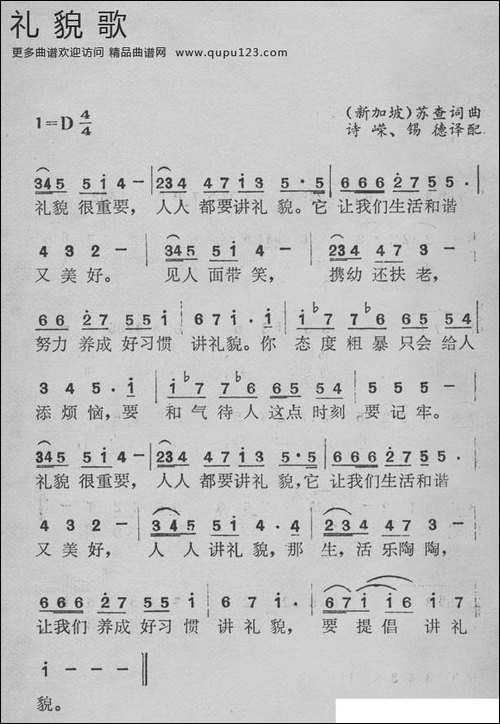 礼貌歌
更多曲谱欢迎访问 精品曲谱网 www.qupu123.com
1=D 4/4
(新加坡)苏查词曲
诗嵘、锡德译配
345 5i4- | 234 47i3 5·5 | 666 2755
礼貌 很重要， 人人 都要讲礼 貌。它 让我们生活和谐
4 3 2 - | 345 5i 4 - | 234 47 3 -
又 美 好。 见人 面带 笑， 携幼 还扶 老，
66 27 551 67i·i | i♭7 7♭6 65 54
努力 养成 好习惯 讲礼貌。你 态度 粗暴 只会 给人
3 4 5·i | i♭7 7♭6 65 54 | 5 5 5 -
添 烦 恼，要 和气 待人 这点 时刻 要 记 牢。
345 5i4- | 234 47i3 5·5 | 666 2755
礼貌 很重要， 人人 都要讲礼 貌，它 让我们生活和谐
4 3 2 - | 345 5i 4·4 | 234 47 3 -
又 美 好， 人 人 讲礼 貌，那 生，活 乐陶 陶，
666 27 551 67i· | 67i i6 i6
让我们 养成 好习 惯 讲 礼 貌， 要 提 倡 讲 礼
i - - - ||
貌。